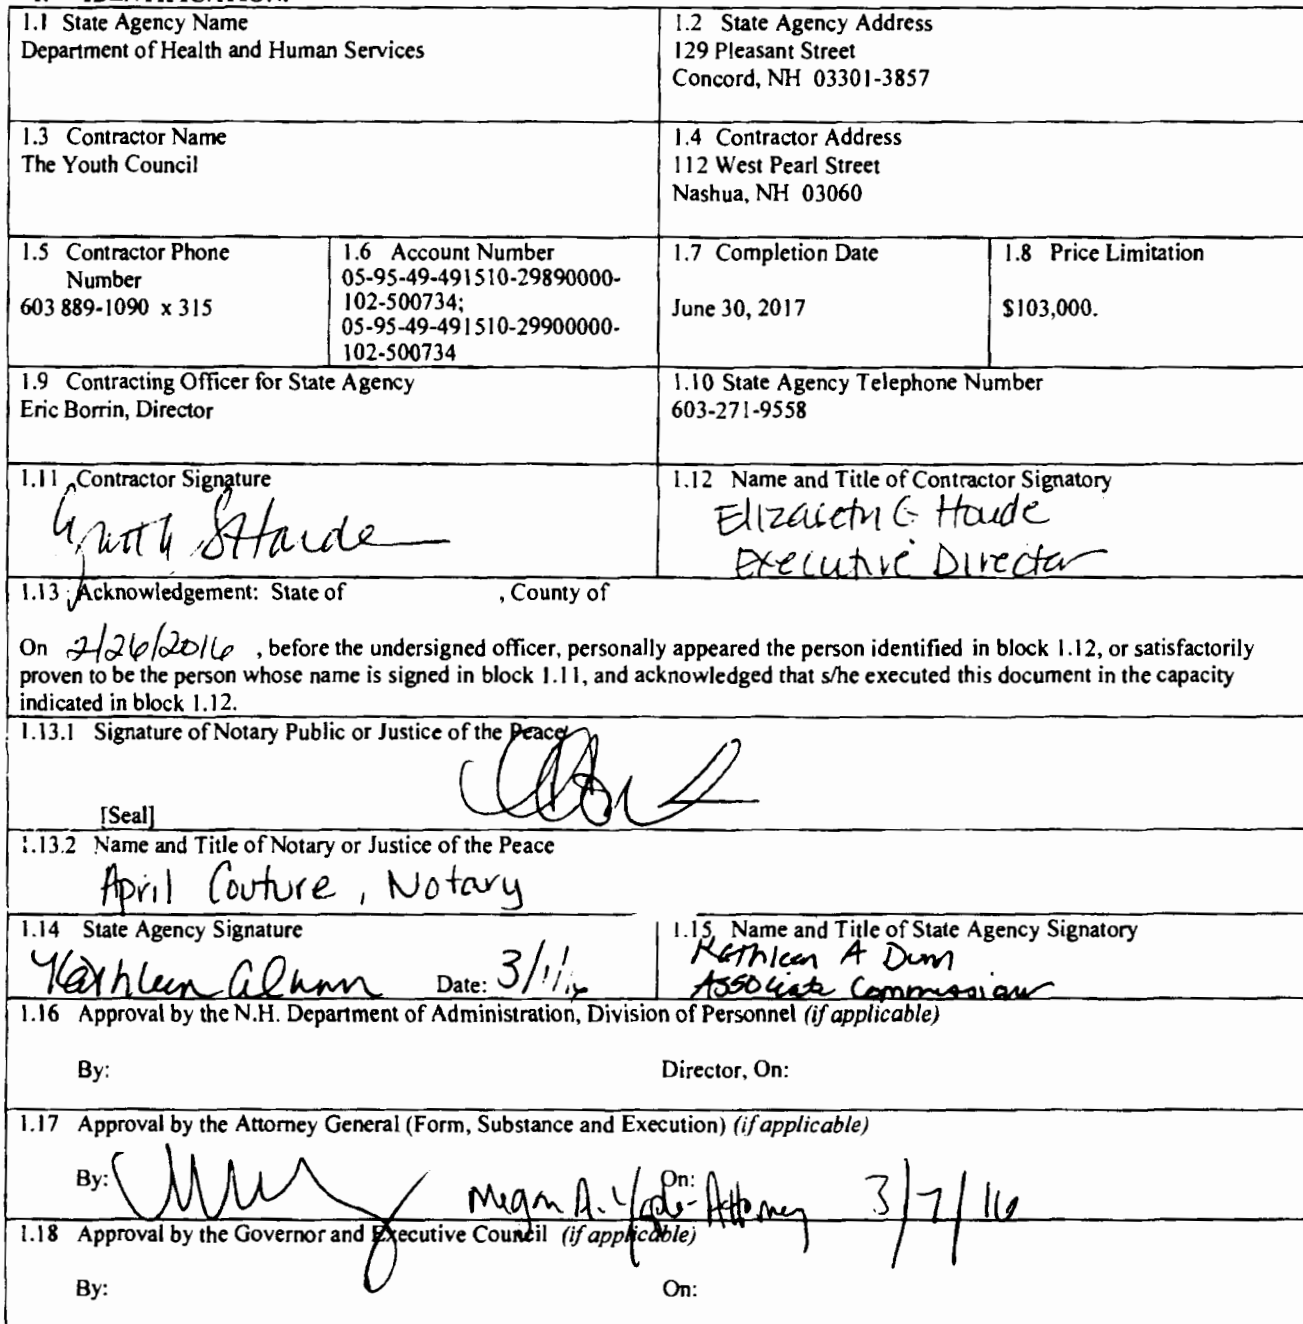 1.1 State Agency Name
Department of Health and Human Services
1.2 State Agency Address
129 Pleasant Street
Concord, NH 03301-3857
1.3 Contractor Name
The Youth Council
1.4 Contractor Address
112 West Pearl Street
Nashua, NH 03060
1.5 Contractor Phone
Number
603 889-1090 x 315
1.6 Account Number
05-95-49-491510-29890000-
102-500734;
05-95-49-491510-29900000-
102-500734
1.7 Completion Date
June 30, 2017
1.8 Price Limitation
$103,000.
1.9 Contracting Officer for State Agency
Eric Borrin, Director
1.10 State Agency Telephone Number
603-271-9558
1.11 Contractor Signature
1.12 Name and Title of Contractor Signatory
Elizabeth G Houde
Executive Director
1.13 Acknowledgement: State of , County of
On 2/26/2016 , before the undersigned officer, personally appeared the person identified in block 1.12, or satisfactorily
proven to be the person whose name is signed in block 1.11, and acknowledged that s/he executed this document in the capacity
indicated in block 1.12.
1.13.1 Signature of Notary Public or Justice of the Peace
[Seal]
1.13.2 Name and Title of Notary or Justice of the Peace
April Couture, Notary
1.14 State Agency Signature
Kathleen A Dunn Date: 3/1/16
1.15 Name and Title of State Agency Signatory
Kathleen A Dunn
Associate Commissioner
1.16 Approval by the N.H. Department of Administration, Division of Personnel (if applicable)
By: Director, On:
1.17 Approval by the Attorney General (Form, Substance and Execution) (if applicable)
By: Megan A. - Attorney On: 3/7/16
1.18 Approval by the Governor and Executive Council (if applicable)
By: On: